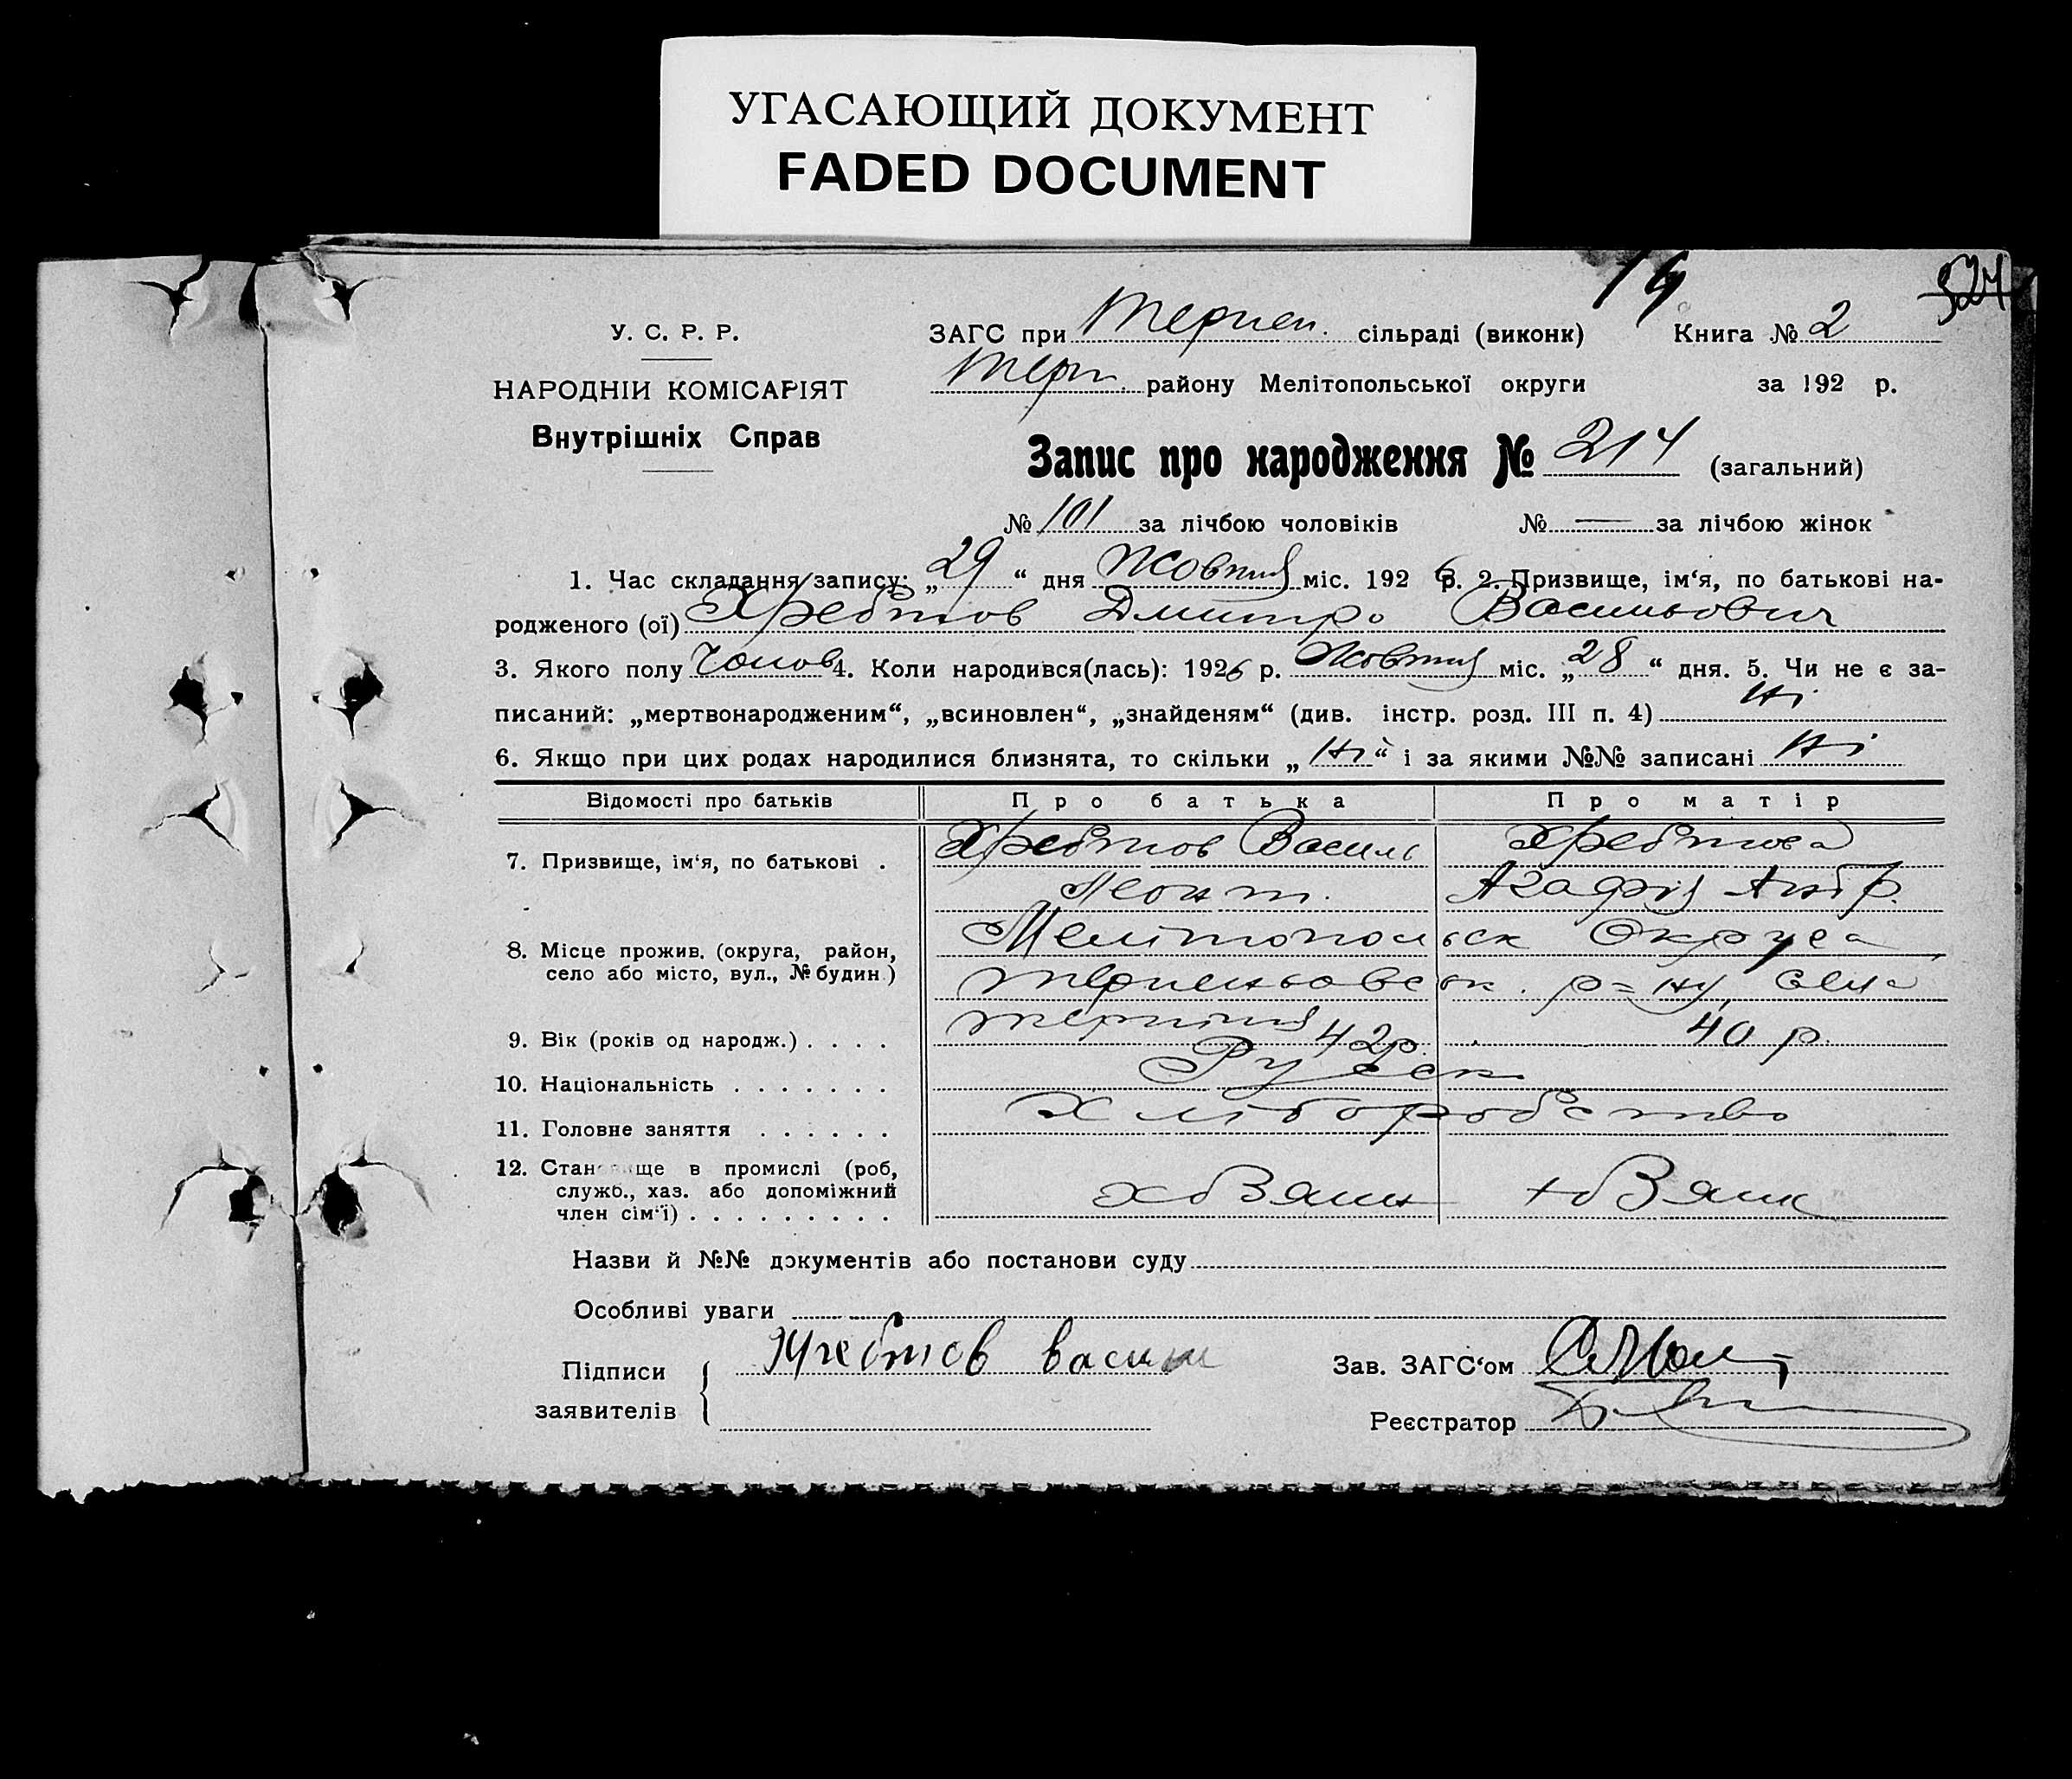 УГАСАЮЩИЙ ДОКУМЕНТ
FADED DOCUMENT
19 524
У. С. Р. Р.
НАРОДНІЙ КОМІСАРІЯТ
Внутрішніх Справ
ЗАГС при Терпен. сільраді (виконк) Книга № 2
Терп. району Мелітопольської округи за 192 р.
Запис про народження № 214 (загальний)
№ 101 за лічбою чоловіків № — за лічбою жінок
1. Час складання запису: „29“ дня Жовтня міс. 1926 р. 2. Призвище, ім‘я, по батькові на-
родженого (ої) Хребтов Дмитро Васильович
3. Якого полу Чолов 4. Коли народився(лась): 1926 р. Жовтня міс. „28“ дня. 5. Чи не є за-
писаний: „мертвонародженим“, „всиновлен“, „знайденям“ (див. інстр. розд. III п. 4) Ні
6. Якщо при цих родах народилися близнята, то скільки „Ні“ і за якими №№ записані Ні
Відомості про батьків Про батька Про матір
7. Призвище, ім‘я, по батькові . Хребтов Василь Хребтова
Леонт. Агафія Андр.
8. Місце прожив. (округа, район, село або місто, вул., № будин.) Мелітопольск Округа
Терпеньовск. р=ну села
Терпіння
9. Вік (років од народж.) . . . . 42р. 40 р.
10. Національність . . . . . . . Русск
11. Головне заняття . . . . . . Хліборобство
12. Становище в промислі (роб,
служб., хаз. або допоміжний
член сім‘ї) . . . . . . . . .
Назви й №№ документів або постанови суду
Особливі уваги
Підписи Хребтов Васили Зав. ЗАГС‘ом
заявителів Реєстратор